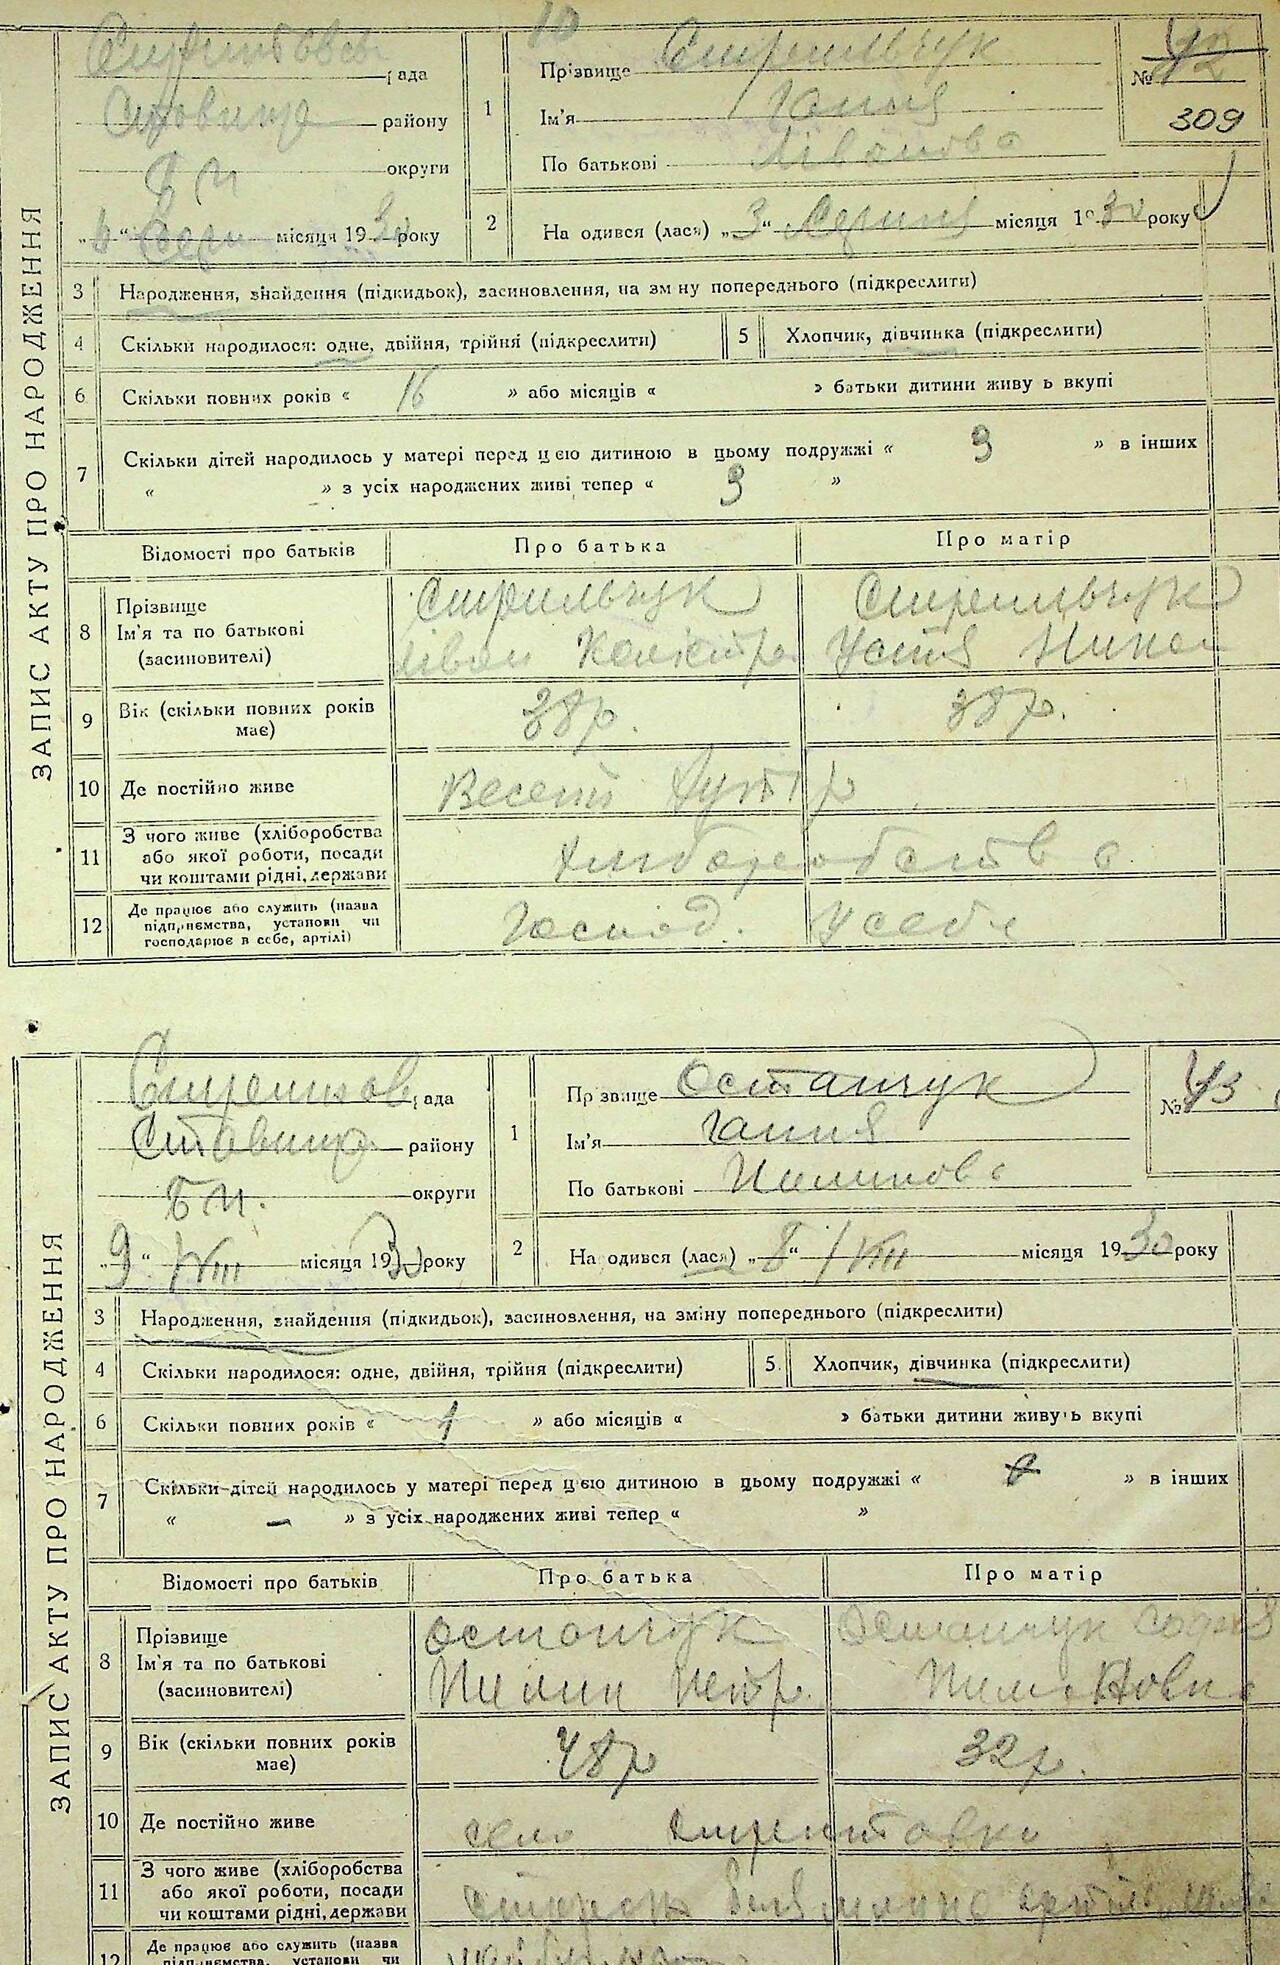 ЗАПИС АКТУ ПРО НАРОДЖЕННЯ
10
рада
району
округи
Бц
" " місяця 1930 року
1
Прізвище Стрельчук
Ім'я Ганья
По батькові Іванова
№ 42
309
2
На одився (лася) „3“ Серпня місяця 1930 року
3 Народження, знайдення (підкидьок), засиновлення, на зм ну попереднього (підкреслити)
4 Скільки народилося: одне, двійня, трійня (підкреслити)
5 Хлопчик, дівчинка (підкреслити)
6 Скільки повних років « 16 » або місяців « » батьки дитини живу ь вкупі
7 Скільки дітей народилось у матері перед ц єю дитиною в цьому подружжі « 3 » в інших
« » з усіх народжених живі тепер « 3 »
Відомості про батьків Про батька Про матір
8 Прізвище Стрельчук Стрельчук
Ім'я та по батькові Іван Калістра Устя
(засиновителі)
9 Вік (скільки повних років має) 38р. 38р.
10 Де постійно живе Весели Хутір
11 З чого живе (хліборобства або якої роботи, посади чи коштами рідні, держави Хліборобств
12 Де працює або служить (назва підприємства, установи чи господарює в себе, артілі) Господ. у себе
ЗАПИС АКТУ ПРО НАРОДЖЕННЯ
рада
Ставище району
Бц. округи
„9“ VIII місяця 1930 року
1
Пр звище Остапчук
Ім'я Гання
По батькові Пилипова
№ 43
2
На одився (лася) „8“ VIII місяця 1930 року
3 Народження, знайдення (підкидьок), засиновлення, на зміну попереднього (підкреслити)
4 Скільки народилося: одне, двійня, трійня (підкреслити)
5. Хлопчик, дівчинка (підкреслиги)
6 Скільки повних років « 1 » або місяців « » батьки дитини живуть вкупі
7 Скільки дітей народилось у матері перед ц єю дитиною в цьому подружжі « » в інших
« — » з усіх народжених живі тепер « »
Відомості про батьків Про батька Про матір
8 Прізвище Остапчук Остапчук Софія
Ім'я та по батькові Пилип Петр.
(засиновителі)
9 Вік (скільки повних років має) 48р 32р.
10 Де постійно живе село
11 З чого живе (хліборобства або якої роботи, посади чи коштами рідні, держави Сторож біля млина
12 Де працює або служить (назва підприємства, установи чи